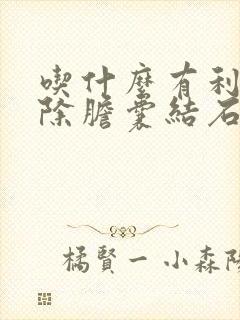 喫什麼有利
除膽囊結石
橘賢一 小森陽